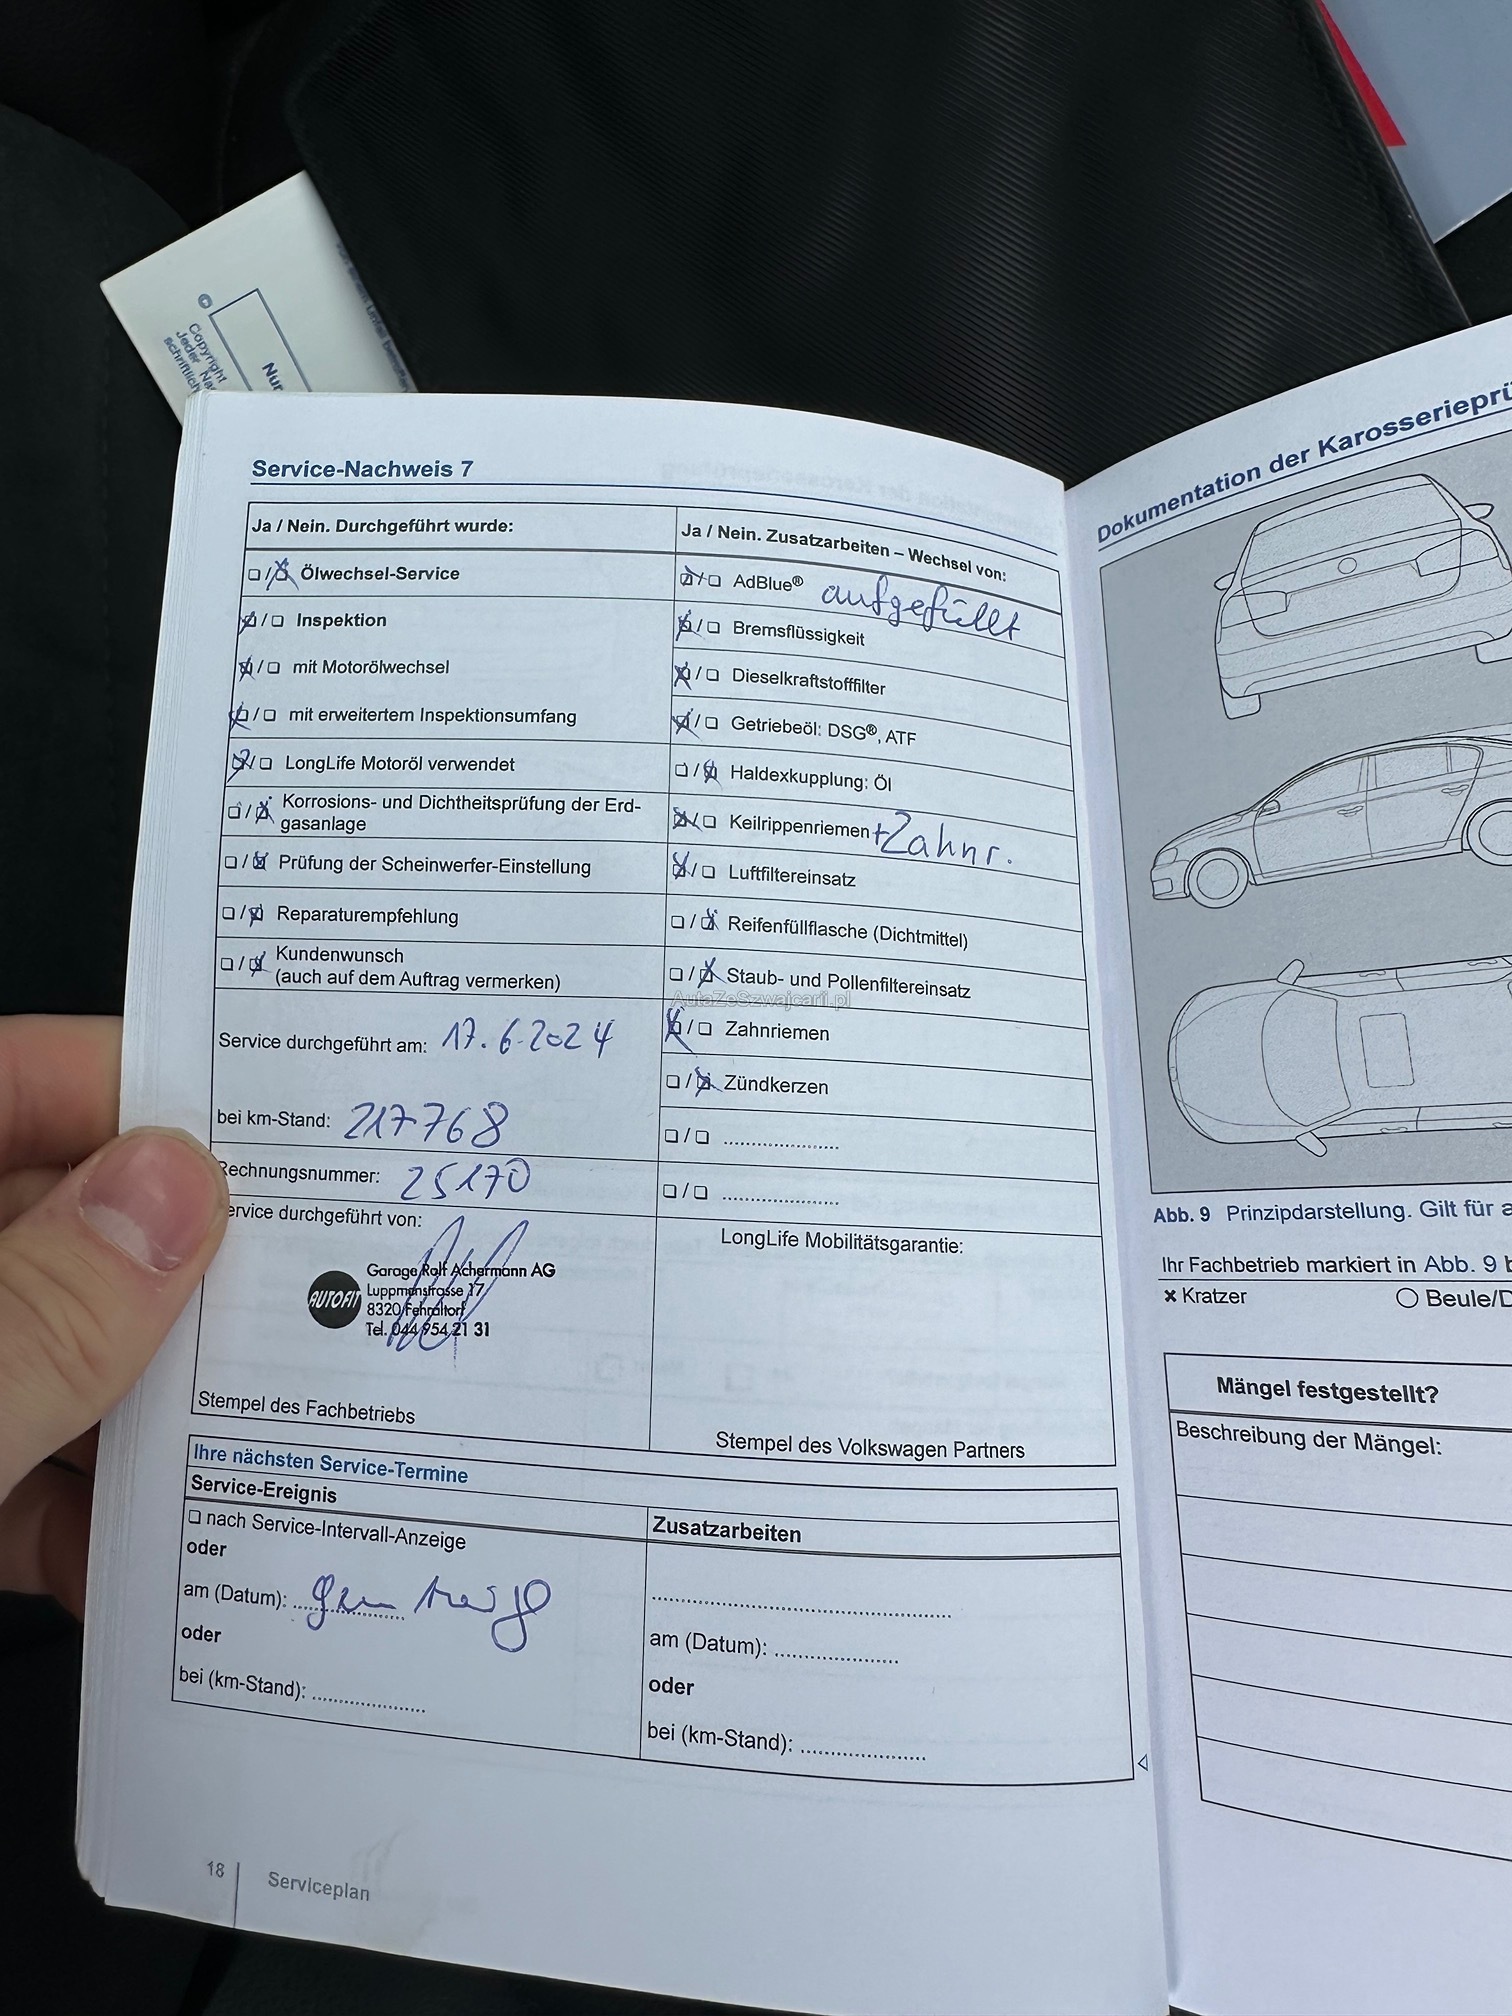 ©
Copyright
Service-Nachweis 7
Ja / Nein. Durchgeführt wurde:
Ölwechsel-Service
Inspektion
mit Motorölwechsel
mit erweitertem Inspektionsumfang
LongLife Motoröl verwendet
Korrosions- und Dichtheitsprüfung der Erd-
gasanlage
Prüfung der Scheinwerfer-Einstellung
Reparaturempfehlung
Kundenwunsch
(auch auf dem Auftrag vermerken)
Service durchgeführt am: 17.6.2024
bei km-Stand: 217768
Rechnungsnummer: 25170
ervice durchgeführt von:
AUTOFIT
Garage Rolf Achermann AG
Luppmenstrasse 17
8320 Fehraltorf
Tel. 044 954 21 31
Stempel des Fachbetriebs
Ja / Nein. Zusatzarbeiten – Wechsel von:
AdBlue® aufgefüllt
Bremsflüssigkeit
Dieselkraftstofffilter
Getriebeöl: DSG®, ATF
Haldexkupplung: Öl
Keilrippenriemen + Zahnr.
Luftfiltereinsatz
Reifenfüllflasche (Dichtmittel)
Staub- und Pollenfiltereinsatz
AutaZeSzwajcarii.pl
Zahnriemen
Zündkerzen
LongLife Mobilitätsgarantie:
Stempel des Volkswagen Partners
Ihre nächsten Service-Termine
Service-Ereignis
nach Service-Intervall-Anzeige
oder
am (Datum):
oder
bei (km-Stand):
Zusatzarbeiten
am (Datum):
oder
bei (km-Stand):
18
Serviceplan
Dokumentation der Karosserieprü
Abb. 9 Prinzipdarstellung. Gilt für a
Ihr Fachbetrieb markiert in Abb. 9 b
Kratzer
Beule/D
Mängel festgestellt?
Beschreibung der Mängel: